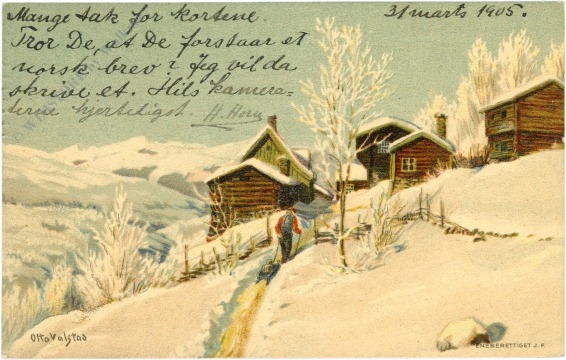 Mange tak for kortene.
31 marts 1905.
Tror De, at De forstaar et
norsk brev? Jeg vil da
skrive et. Hils kamera-
terne hjerteligst. H. Horn
Otto Valstad
ENEBERETTIGET J. F.